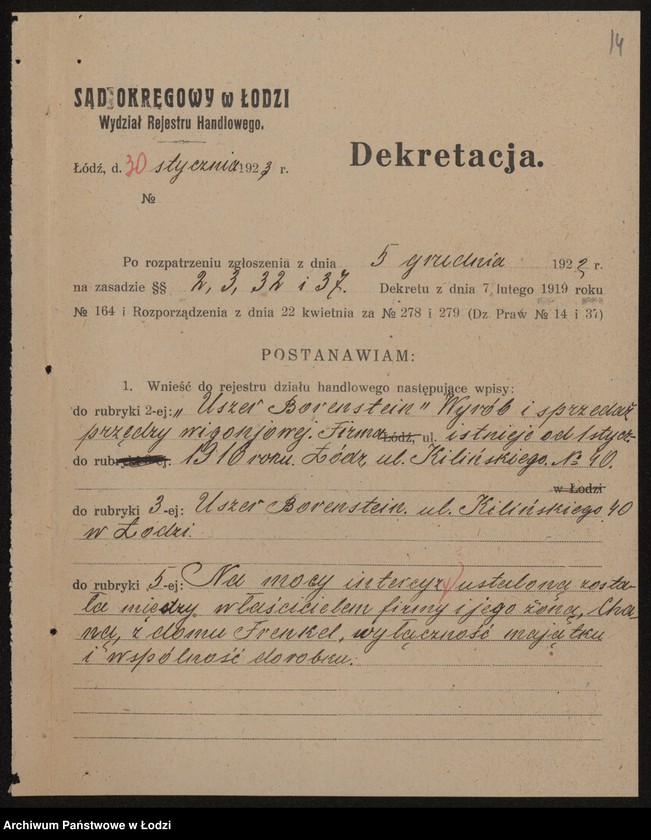 14
SĄD OKRĘGOWY w ŁODZI
Wydział Rejestru Handlowego.
Dekretacja.
Łódź, d. 30 stycznia 1923 r.
№
Po rozpatrzeniu zgłoszenia z dnia 5 grudnia 1922 r.
na zasadzie §§ 2, 3, 32 i 37. Dekretu z dnia 7 lutego 1919 roku
№ 164 i Rozporządzenia z dnia 22 kwietnia za № 278 i 279 (Dz Praw № 14 i 37)
POSTANAWIAM:
1. Wnieść do rejestru działu handlowego następujące wpisy:
do rubryki 2-ej: „Uszer Borenstein" Wyrób i sprzedaż
przędzy wigonjowej. Firma Łódź, ul. istnieje od 1 stycz-
do rubryki ej. 1910 roku. Łódź, ul. Kilińskiego. № 40.
w Łodzi
do rubryki 3-ej: Uszer Borenstein. ul. Kilińskiego 40
w Łodzi.
do rubryki 5-ej: Na mocy intercyzy ustaloną zosta-
ła między właścicielem firmy i jego żoną, Cha-
ną, z domu Frenkel, wyłączność majątku
i wspólność dorobku.
Archiwum Państwowe w Łodzi